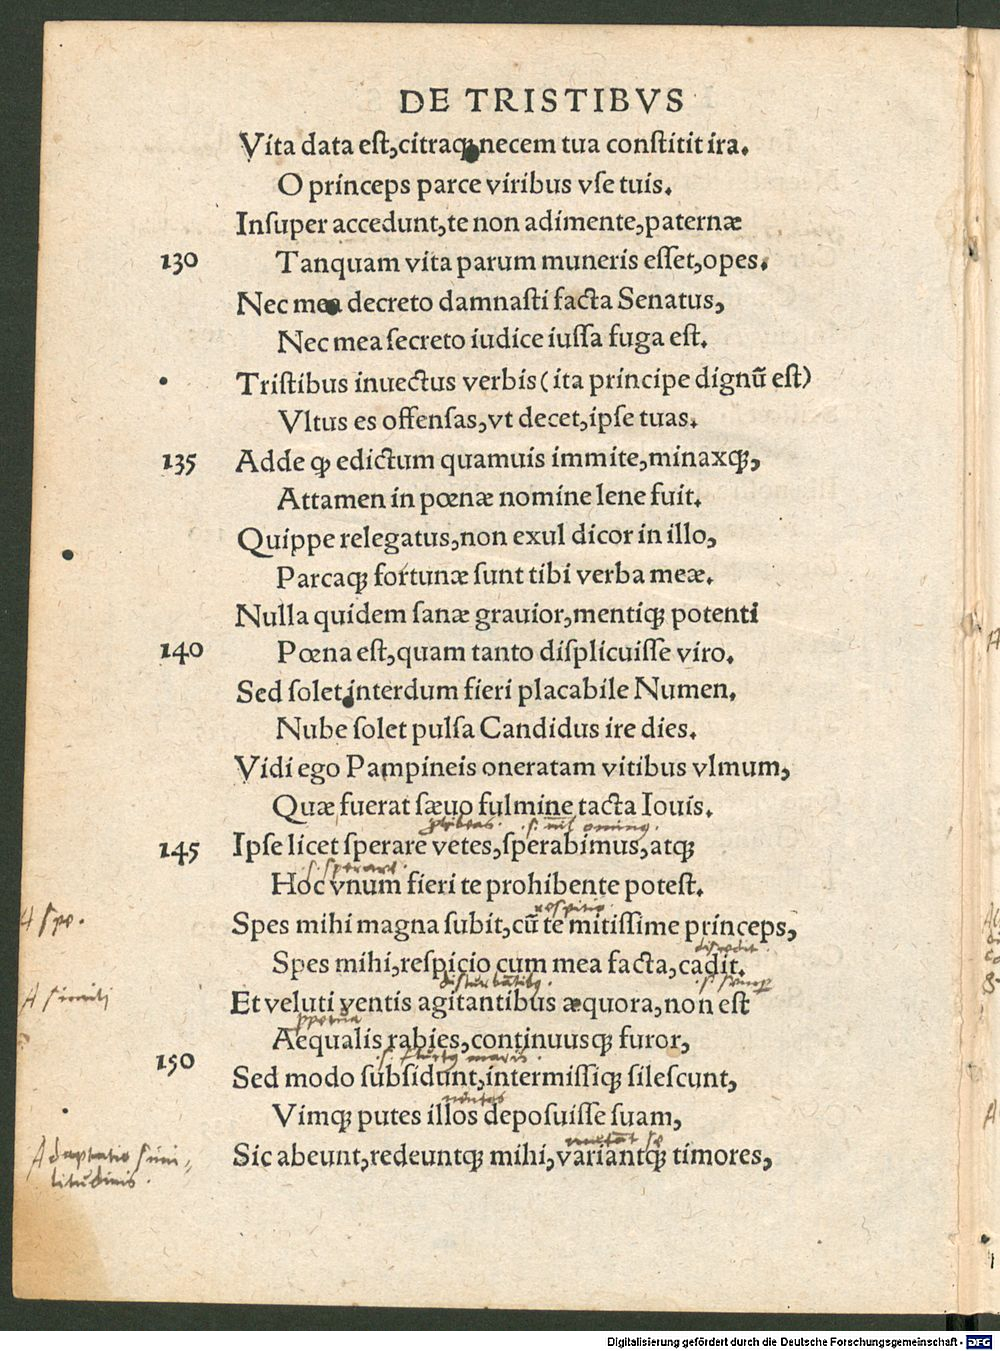 DE TRISTIBVS
Vita data est, citraq; necem tua constitit ira.
O princeps parce viribus vse tuis.
Insuper accedunt, te non adimente, paternæ
130 Tanquam vita parum muneris esset, opes.
Nec mea decreto damnasti facta Senatus,
Nec mea secreto iudice iussa fuga est.
Tristibus inuectus verbis (ita principe dignũ est)
Vltus es offensas, vt decet, ipse tuas.
135 Adde ꝙ edictum quamuis immite, minaxq;,
Attamen in pœnæ nomine lene fuit.
Quippe relegatus, non exul dicor in illo,
Parcaq; fortunæ sunt tibi verba meæ.
Nulla quidem sanæ grauior, mentiq; potenti
140 Pœna est, quam tanto displicuisse viro.
Sed solet interdum fieri placabile Numen.
Nube solet pulsa Candidus ire dies.
Vidi ego Pampineis oneratam vitibus vlmum,
Quæ fuerat sæuo fulmine tacta Iouis.
145 Ipse licet sperare vetes, sperabimus, atq;
s. sperare
Hoc vnum fieri te prohibente potest.
A spe.
Spes mihi magna subit, cũ te mitissime princeps,
Spes mihi, respicio cum mea facta, cadit.
A simili
Et veluti ventis agitantibus æquora, non est
Aequalis rabies, continuusq; furor,
s. fluctus maris.
150 Sed modo subsidunt, intermissiq; silescunt,
Vimq; putes illos deposuisse suam,
Adaptatio simi-
litudinis.
Sic abeunt, redeuntq; mihi, variantq; timores,
Digitalisierung gefördert durch die Deutsche Forschungsgemeinschaft - DFG